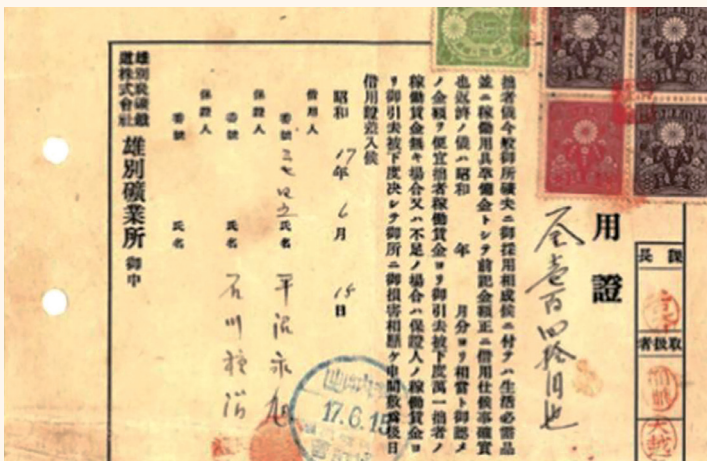 課長
取扱者
用證
金壹百四拾円也
拙者儀今般御所礦夫ニ御採用相成候ニ付テハ生活必需品
並ニ稼働用具準備金トシテ前記金額正ニ借用仕候事確實
也返濟ノ儀ハ昭和 年 月分ヨリ相當ト御認メ
ノ金額ヲ便宜拙者稼働賃金ヨリ御引去被下度萬一拙者ノ
稼働賃金無キ場合又ハ不足ノ場合ハ保證人ノ稼働賃金ヨ
リ御引去被下度決シテ御所ニ御損害相懸ケ申間敷爲後日
借用證差入候
昭和 17年 6月 15日
借用人
番號 氏名 平沼永旭
保證人
番號 氏名 石川種沼
保證人
番號 氏名
雄別炭礦鐵
道株式會社 雄別礦業所 御中
17.6.15